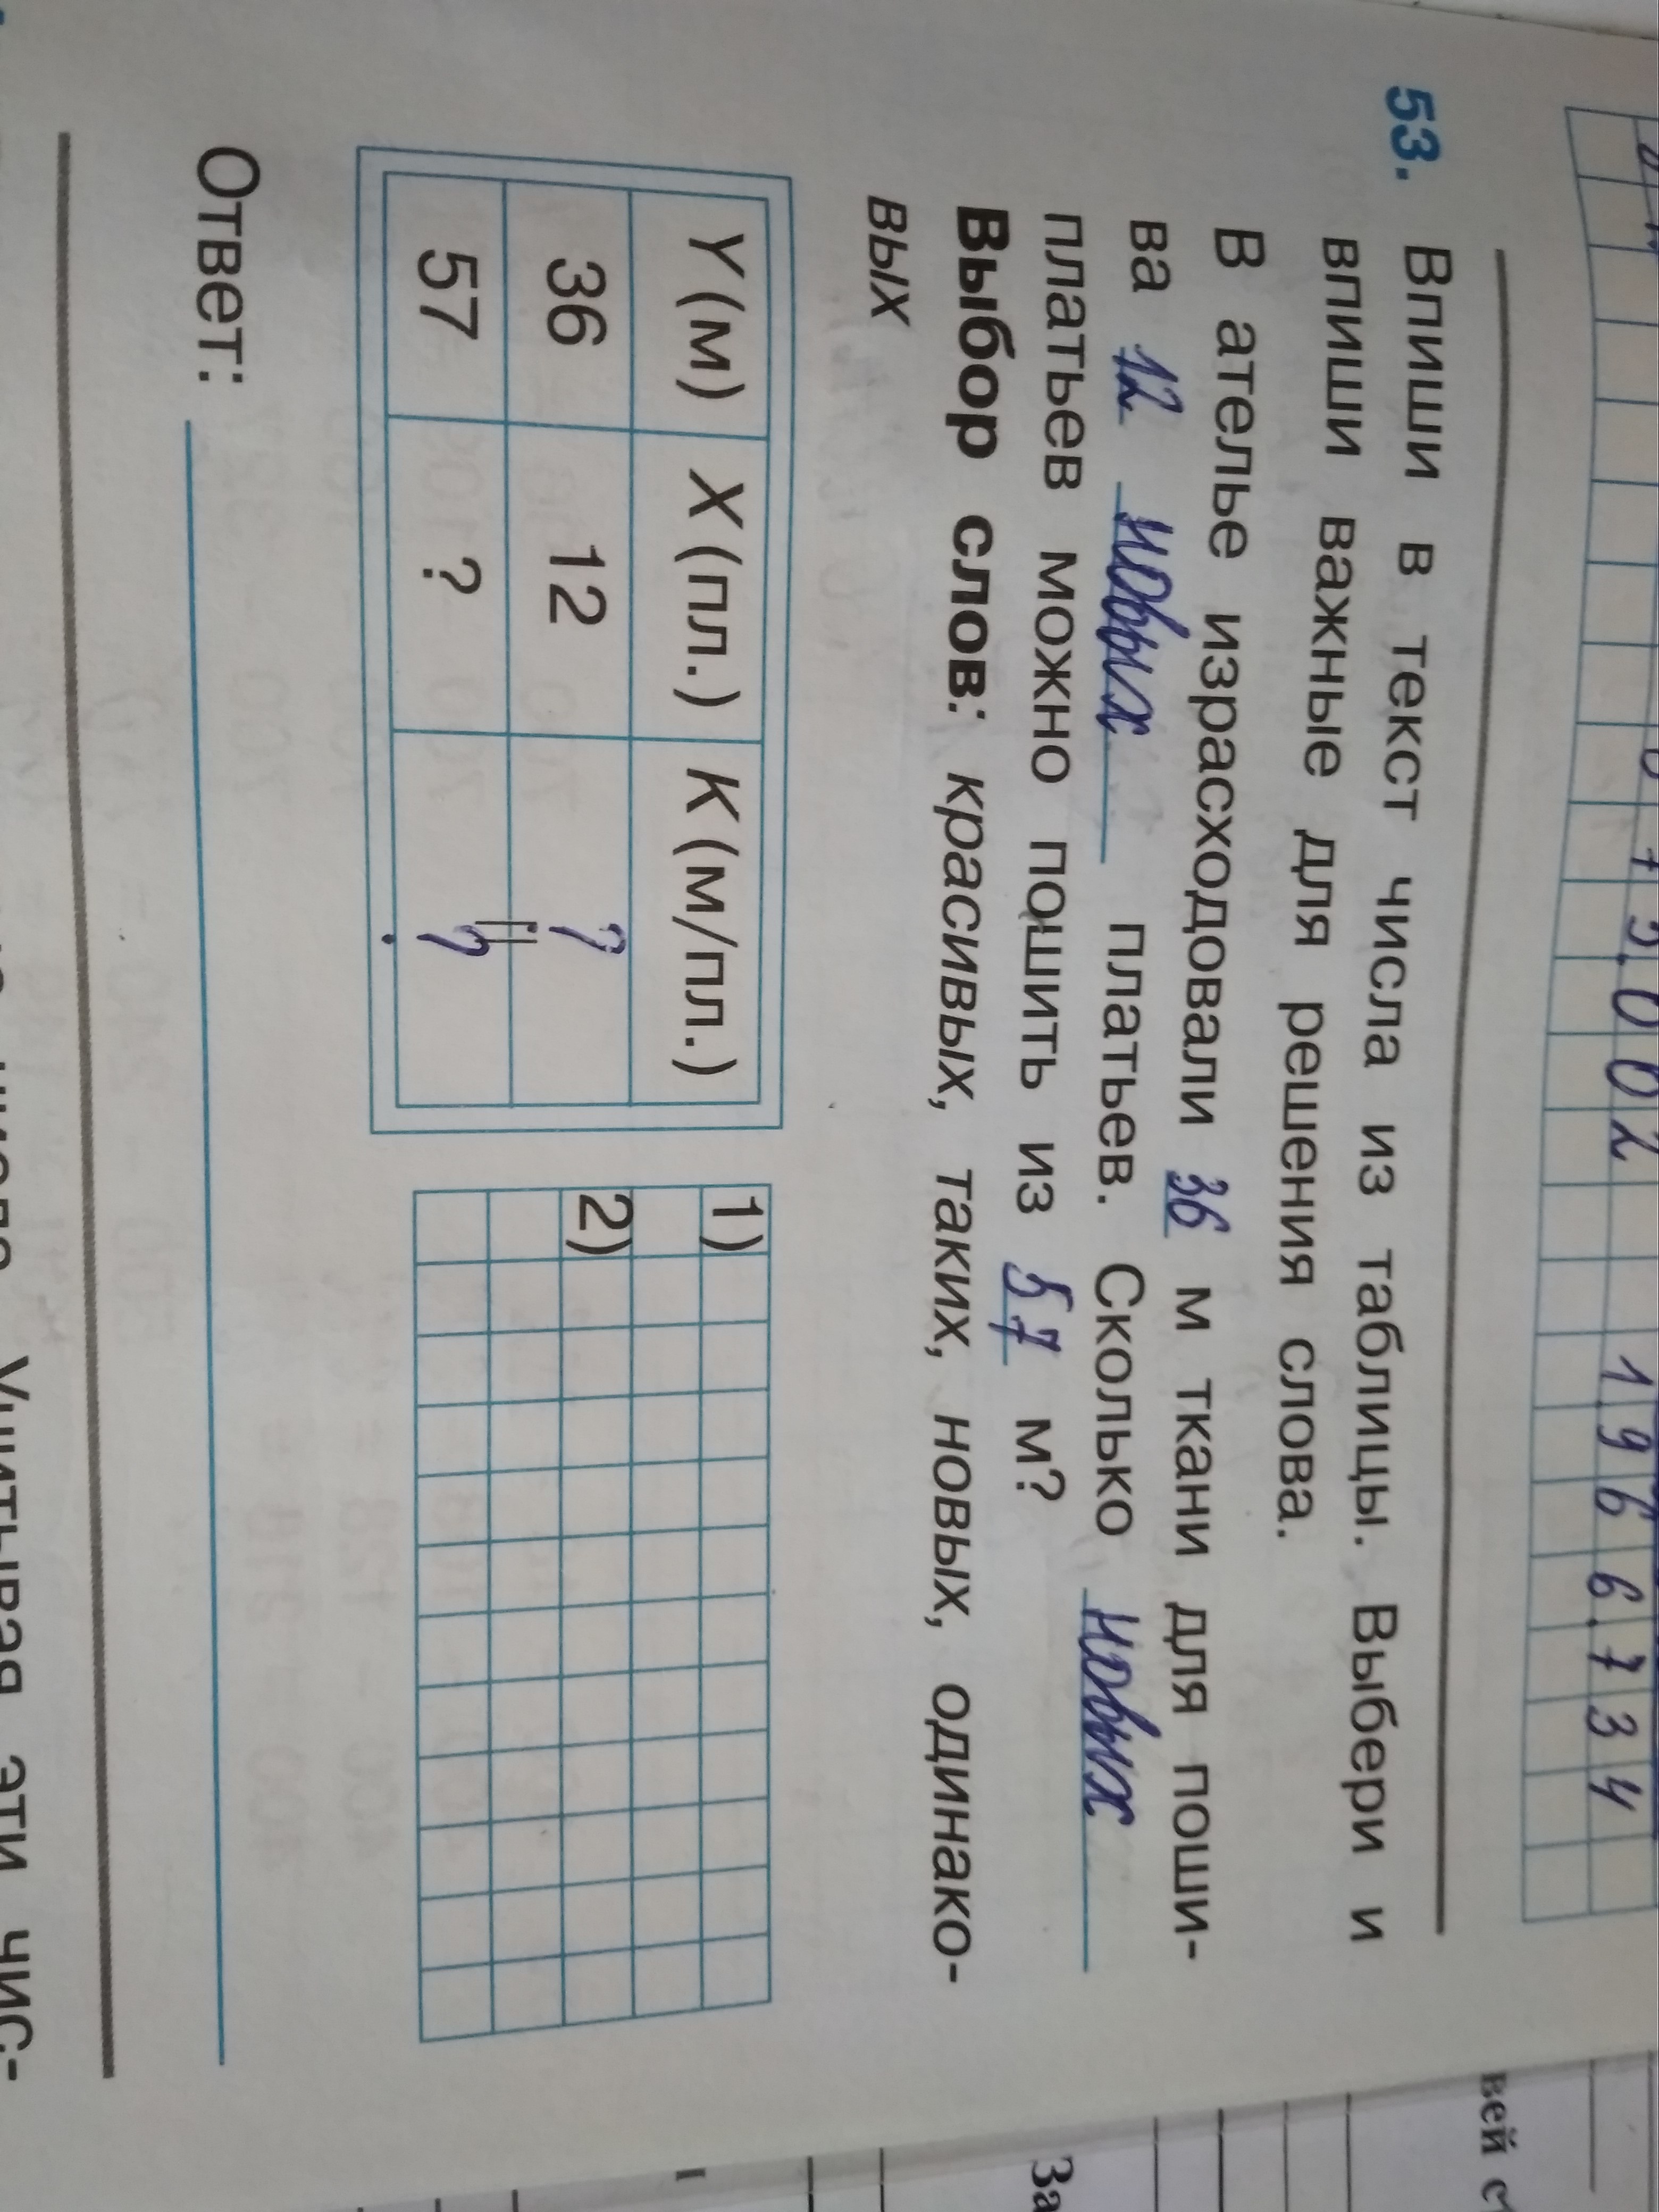 15.002 196 6.734
53. Впиши в текст числа из таблицы. Выбери и
впиши важные для решения слова.
В ателье израсходовали 36 м ткани для поши-
ва 12 новых платьев. Сколько новых
платьев можно пошить из 57 м?
Выбор слов: красивых, таких, новых, одинако-
вых
Y (м) X (пл.) К (м/пл.)
36 12 ?
57 ? ?
1)
2)
Ответ:
Учитывая эти чис-
вей
За